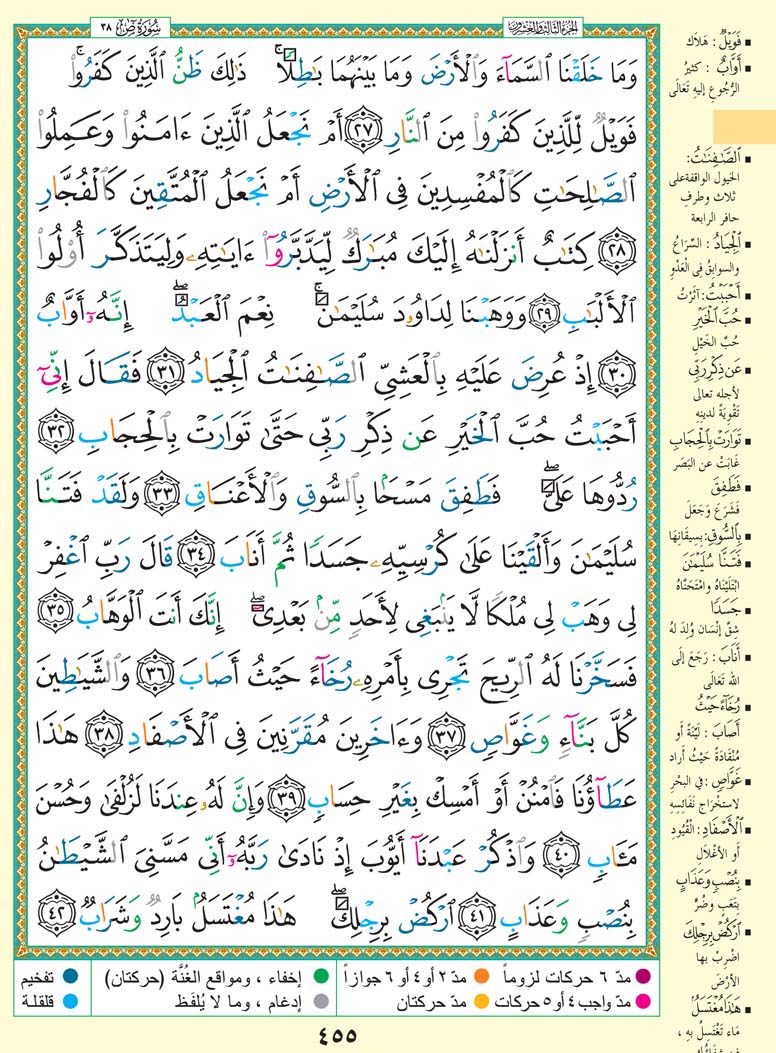 سُورَةُ صٓ ٣٨
الجزء الثالث والعشرون
وَمَا خَلَقْنَا ٱلسَّمَآءَ وَٱلْأَرْضَ وَمَا بَيْنَهُمَا بَـٰطِلًا ۚ ذَٰلِكَ ظَنُّ ٱلَّذِينَ كَفَرُوا۟ ۚ
فَوَيْلٌ لِّلَّذِينَ كَفَرُوا۟ مِنَ ٱلنَّارِ ٢٧ أَمْ نَجْعَلُ ٱلَّذِينَ ءَامَنُوا۟ وَعَمِلُوا۟
ٱلصَّـٰلِحَـٰتِ كَٱلْمُفْسِدِينَ فِى ٱلْأَرْضِ أَمْ نَجْعَلُ ٱلْمُتَّقِينَ كَٱلْفُجَّارِ
٢٨ كِتَـٰبٌ أَنزَلْنَـٰهُ إِلَيْكَ مُبَـٰرَكٌ لِّيَدَّبَّرُوٓا۟ ءَايَـٰتِهِۦ وَلِيَتَذَكَّرَ أُو۟لُوا۟
ٱلْأَلْبَـٰبِ ٢٩ وَوَهَبْنَا لِدَاوُۥدَ سُلَيْمَـٰنَ ۚ نِعْمَ ٱلْعَبْدُ ۖ إِنَّهُۥٓ أَوَّابٌ
٣٠ إِذْ عُرِضَ عَلَيْهِ بِٱلْعَشِىِّ ٱلصَّـٰفِنَـٰتُ ٱلْجِيَادُ ٣١ فَقَالَ إِنِّىٓ
أَحْبَبْتُ حُبَّ ٱلْخَيْرِ عَن ذِكْرِ رَبِّى حَتَّىٰ تَوَارَتْ بِٱلْحِجَابِ ٣٢
رُدُّوهَا عَلَىَّ ۖ فَطَفِقَ مَسْحًۢا بِٱلسُّوقِ وَٱلْأَعْنَاقِ ٣٣ وَلَقَدْ فَتَنَّا
سُلَيْمَـٰنَ وَأَلْقَيْنَا عَلَىٰ كُرْسِيِّهِۦ جَسَدًا ثُمَّ أَنَابَ ٣٤ قَالَ رَبِّ ٱغْفِرْ
لِى وَهَبْ لِى مُلْكًا لَّا يَنۢبَغِى لِأَحَدٍ مِّنۢ بَعْدِىٓ ۖ إِنَّكَ أَنتَ ٱلْوَهَّابُ ٣٥
فَسَخَّرْنَا لَهُ ٱلرِّيحَ تَجْرِى بِأَمْرِهِۦ رُخَآءً حَيْثُ أَصَابَ ٣٦ وَٱلشَّيَـٰطِينَ
كُلَّ بَنَّآءٍ وَغَوَّاصٍ ٣٧ وَءَاخَرِينَ مُقَرَّنِينَ فِى ٱلْأَصْفَادِ ٣٨ هَـٰذَا
عَطَآؤُنَا فَٱمْنُنْ أَوْ أَمْسِكْ بِغَيْرِ حِسَابٍ ٣٩ وَإِنَّ لَهُۥ عِندَنَا لَزُلْفَىٰ وَحُسْنَ
مَـَٔابٍ ٤٠ وَٱذْكُرْ عَبْدَنَآ أَيُّوبَ إِذْ نَادَىٰ رَبَّهُۥٓ أَنِّى مَسَّنِىَ ٱلشَّيْطَـٰنُ
بِنُصْبٍ وَعَذَابٍ ٤١ ٱرْكُضْ بِرِجْلِكَ ۖ هَـٰذَا مُغْتَسَلٌۢ بَارِدٌ وَشَرَابٌ ٤٢
فَوَيْلٌ : هَلاك
أَوَّابٌ : كثيرُ
الرُّجُوعِ إليه تَعَالَى
ٱلصَّـٰفِنَـٰتُ:
الخيول الواقفة على
ثلاث وطرفِ
حافر الرابعة
ٱلْجِيَادُ : السِّرَاعُ
والسوابقُ في العَدْوِ
أَحْبَبْتُ : آثَرْتُ
حُبَّ ٱلْخَيْرِ
حُبَّ الخَيْلِ
عَن ذِكْرِ رَبِّي
لأجله تعالى
تَقْوِيَةً لدينِه
تَوَارَتْ بِٱلْحِجَابِ
غَابَتْ عن البَصَر
فَطَفِقَ
فَشَرَعَ وَجَعَلَ
بِٱلسُّوقِ : بِسِيقَانِهَا
فَتَنَّا سُلَيْمَـٰنَ
ابْتَلَيْنَاهُ وامْتَحَنَّاهُ
جَسَدًا
شِقُّ إنْسَان وُلِدَ لهُ
أَنَابَ : رَجَعَ إلَى
الله تَعَالَى
رُخَآءً حَيْثُ
أَصَابَ : لَيِّنَةً أو
مُنْقَادَةً حَيْثُ أراد
غَوَّاصٍ : في البَحْرِ
لاستخراج نَفَائِسِهِ
ٱلْأَصْفَادِ : القُيُودِ
أو الأغْلال
بِنُصْبٍ وَعَذَابٍ
بتَعَبٍ وضُرٍّ
ٱرْكُضْ بِرِجْلِكَ
اضْرِبْ بها
الأرْضَ
هَـٰذَا مُغْتَسَلٌ
مَاء تَغْتَسِلُ بِه ،
مدّ ٦ حركات لزوماً
مدّ ٢ أو ٤ أو ٦ جوازاً
إخفاء ، ومواقع الغُنَّة (حركتان)
تفخيم
مدّ واجب ٤ أو ٥ حركات
مدّ حركتان
إدغام ، وما لا يُلفَظ
قلقلة
٤٥٥